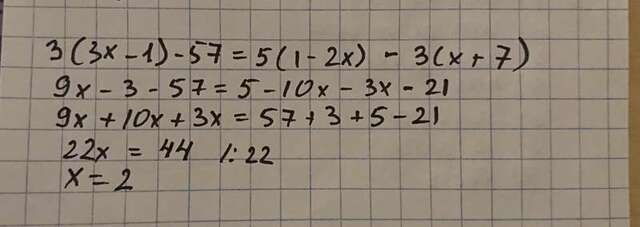 3(3x-1)-57=5(1-2x) - 3(x+7)
9x-3-57=5-10x-3x-21
9x+10x+3x=57+3+5-21
22x = 44 /:22
x=2